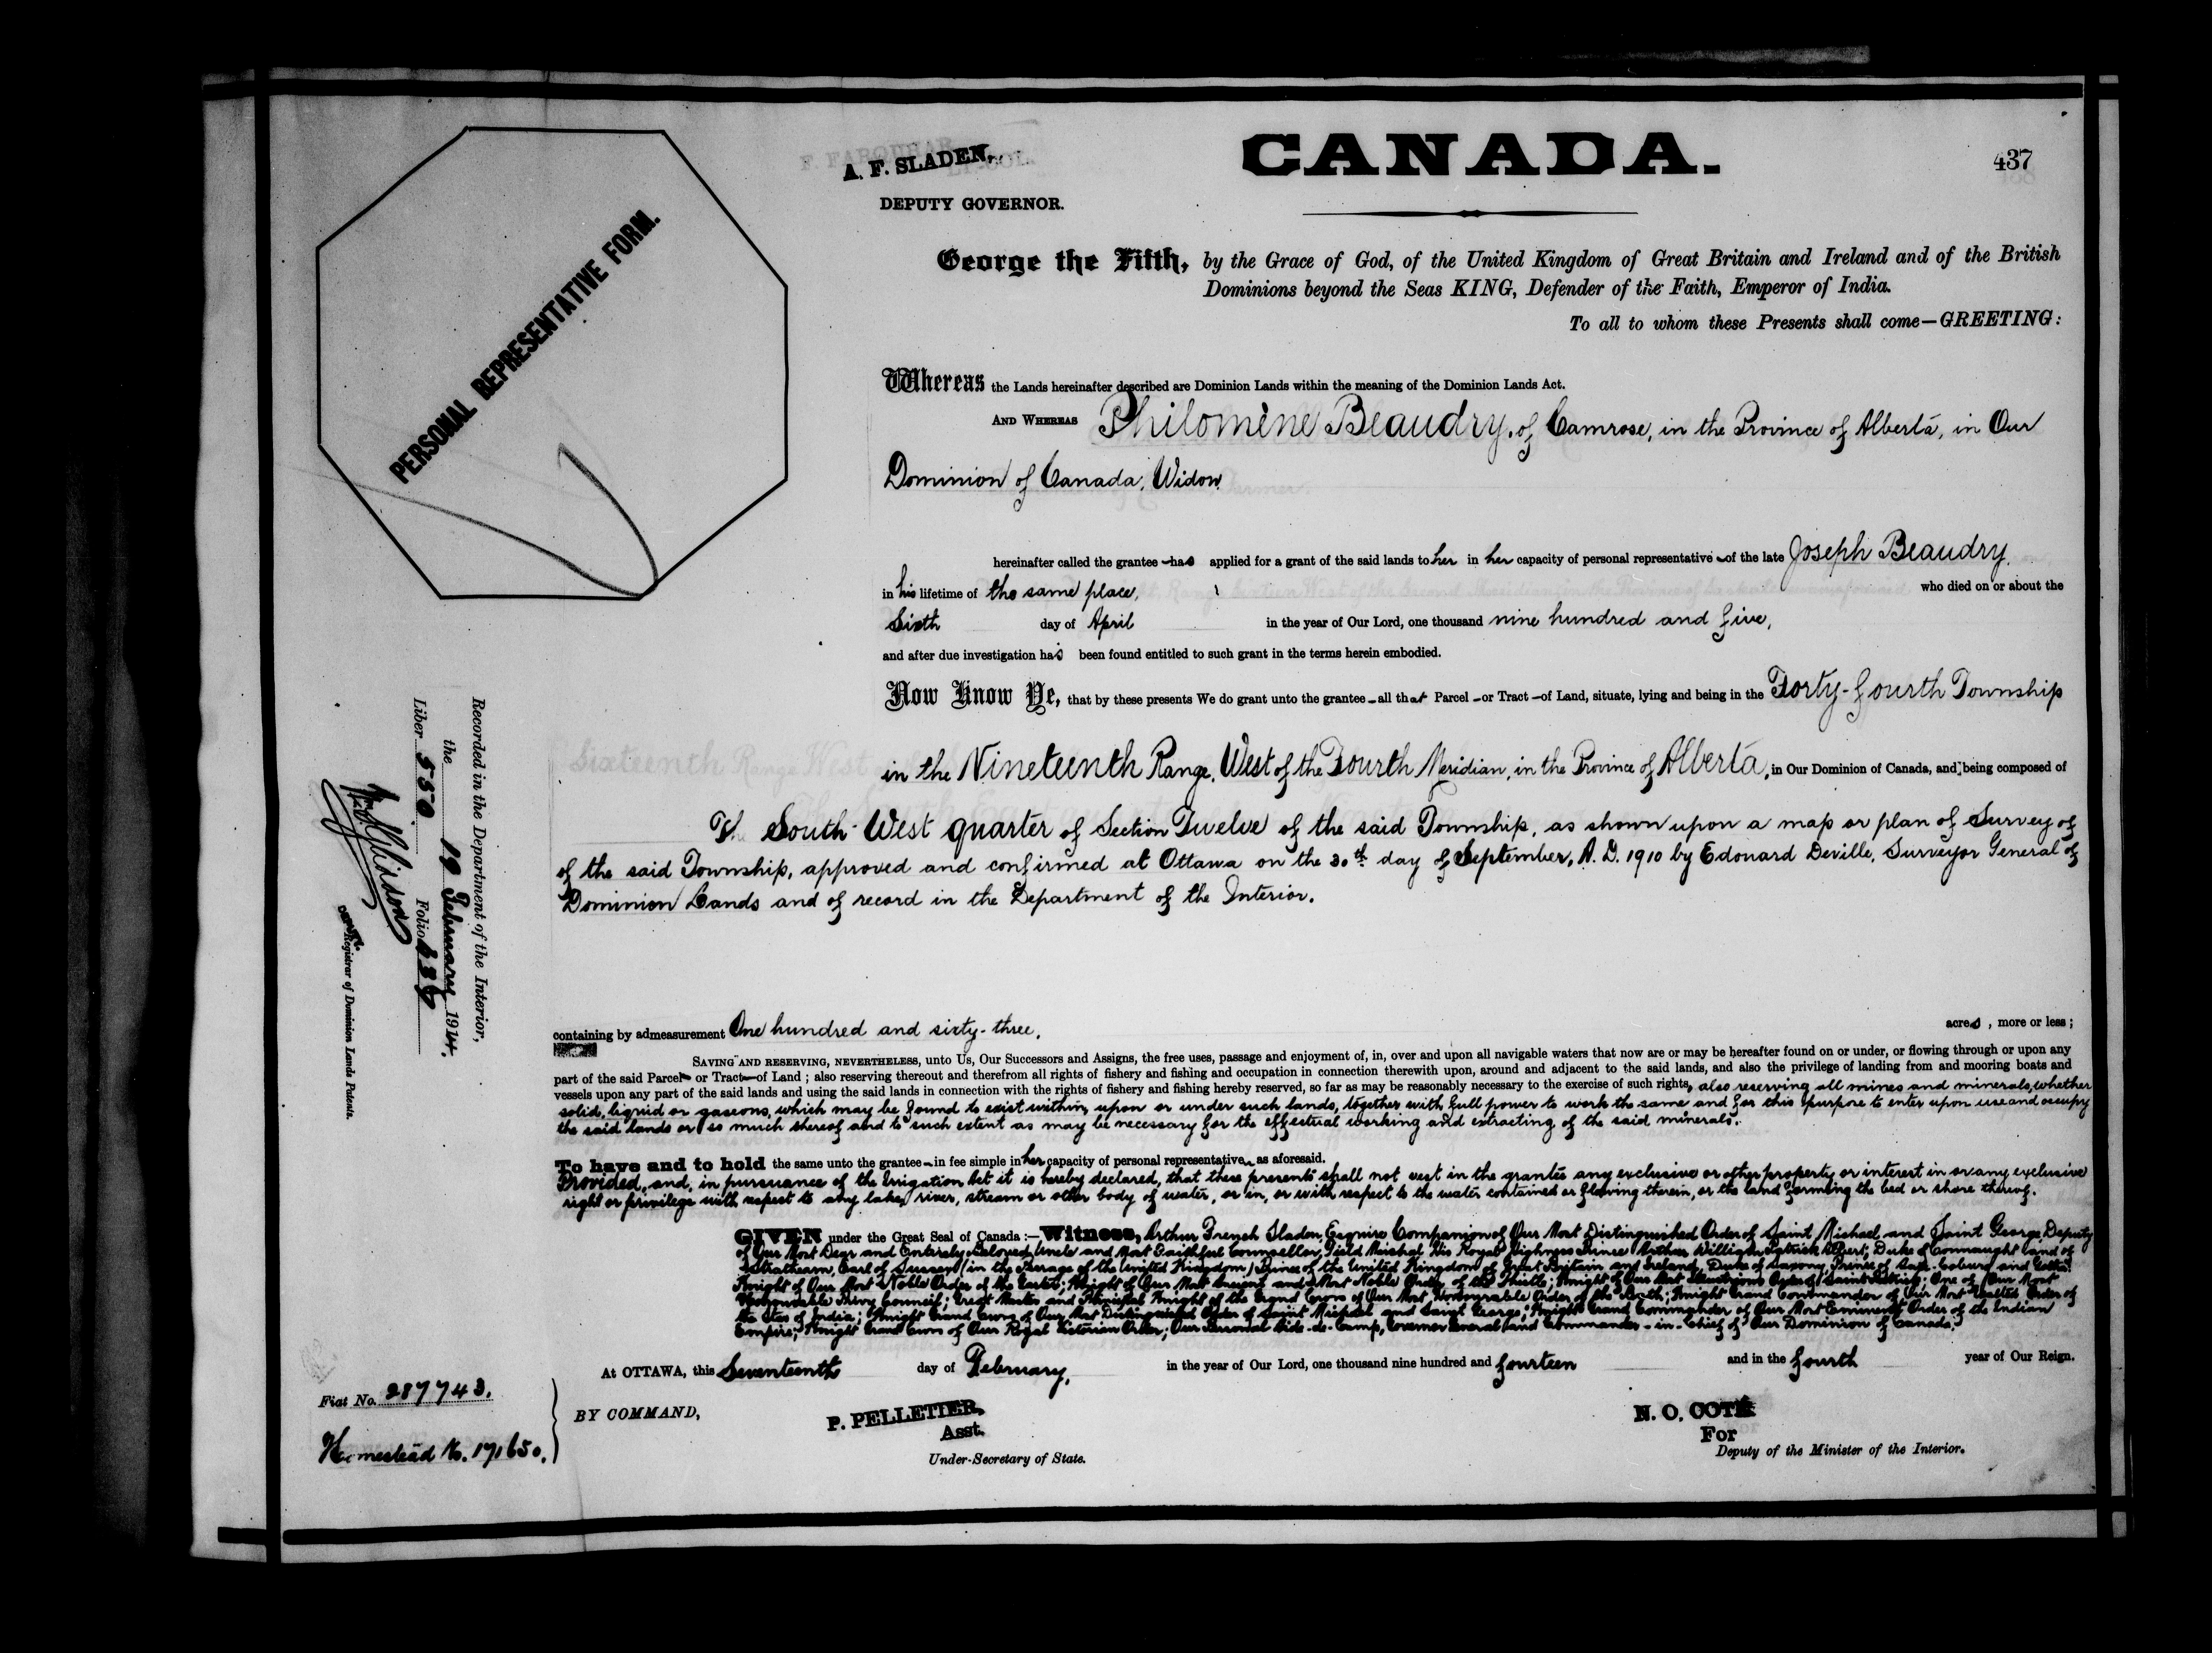 CANADA.
437
A. F. SLADEN,
DEPUTY GOVERNOR.
PERSONAL REPRESENTATIVE FORM.
George the Fifth, by the Grace of God, of the United Kingdom of Great Britain and Ireland and of the British
Dominions beyond the Seas KING, Defender of the Faith, Emperor of India.
To all to whom these Presents shall come—GREETING:
Whereas the Lands hereinafter described are Dominion Lands within the meaning of the Dominion Lands Act.
AND WHEREAS Philomène Beaudry, of Camrose, in the Province of Alberta, in Our
Dominion of Canada, Widow,
hereinafter called the grantee has applied for a grant of the said lands to her in her capacity of personal representative of the late Joseph Beaudry,
in his lifetime of the same place, who died on or about the
Sixth day of April in the year of Our Lord, one thousand nine hundred and five,
and after due investigation has been found entitled to such grant in the terms herein embodied.
Now Know Ye, that by these presents We do grant unto the grantee all that Parcel or Tract of Land, situate, lying and being in the Forty-fourth Township
in the Nineteenth Range, West of the Fourth Meridian, in the Province of Alberta, in Our Dominion of Canada, and being composed of
The South-West quarter of Section Twelve of the said Township, as shown upon a map or plan of Survey of
of the said Township, approved and confirmed at Ottawa on the 30th day of September, A.D. 1910 by Edouard Deville, Surveyor General of
Dominion Lands and of record in the Department of the Interior.
containing by admeasurement One hundred and sixty-three, acres, more or less;
SAVING AND RESERVING, NEVERTHELESS, unto Us, Our Successors and Assigns, the free uses, passage and enjoyment of, in, over and upon all navigable waters that now are or may be hereafter found on or under, or flowing through or upon any
part of the said Parcel or Tract of Land; also reserving thereout and therefrom all rights of fishery and fishing and occupation in connection therewith upon, around and adjacent to the said lands, and also the privilege of landing from and mooring boats and
vessels upon any part of the said lands and using the said lands in connection with the rights of fishery and fishing hereby reserved, so far as may be reasonably necessary to the exercise of such rights, also reserving all mines and minerals, whether
solid, liquid or gaseous, which may be found to exist within, upon or under such lands, together with full power to work the same and for this purpose to enter upon use and occupy
the said lands or so much thereof and to such extent as may be necessary for the effectual working and extracting of the said minerals.
To have and to hold the same unto the grantee in fee simple in her capacity of personal representative as aforesaid.
Provided, and, in pursuance of the Irrigation Act it is hereby declared, that these presents shall not vest in the grantee any exclusive or other property or interest in or any exclusive
right or privilege with respect to any lake, river, stream or other body of water, or in, or with respect to the water contained or flowing therein, or the land forming the bed or shore thereof.
GIVEN under the Great Seal of Canada:—Witness, Arthur French Sladen, Esquire Companion of Our Most Distinguished Order of Saint Michael and Saint George, Deputy
of Our Most Dear and Entirely Beloved Uncle and Most Faithful Counsellor, Field Marshal His Royal Highness Prince Arthur William Patrick Albert, Duke of Connaught and of
Strathearn, Earl of Sussex (in the Peerage of the United Kingdom) Prince of the United Kingdom of Great Britain and Ireland, Duke of Saxony, Prince of Saxe-Coburg and Gotha;
Knight of Our Most Noble Order of the Garter; Knight of Our Most Ancient and Most Noble Order of the Thistle; Knight of Our Most Illustrious Order of Saint Patrick; One of Our Most
Honourable Privy Council; Great Master and Principal Knight of the Grand Cross of Our Most Honourable Order of the Bath; Knight Grand Commander of Our Most Exalted Order of
the Star of India; Knight Grand Cross of Our Most Distinguished Order of Saint Michael and Saint George; Knight Grand Commander of Our Most Eminent Order of the Indian
Empire; Knight Grand Cross of Our Royal Victorian Order; Our Personal Aide-de-Camp, Governor General and Commander-in-Chief of Our Dominion of Canada.
At OTTAWA, this Seventeenth day of February, in the year of Our Lord, one thousand nine hundred and fourteen and in the fourth year of Our Reign.
BY COMMAND,
P. PELLETIER,
Asst.
Under-Secretary of State.
N. O. COTÉ
For
Deputy of the Minister of the Interior.
Recorded in the Department of the Interior,
the 19 February 1914.
Liber 550 Folio
Registrar of Dominion Lands Patents.
Fiat No. 287743.
Homestead No. 171650.